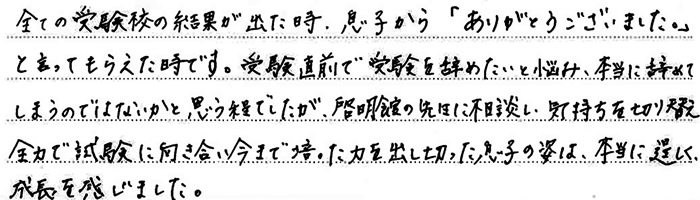 全ての受験校の結果が出た時、息子から「ありがとうございました。」
と言ってもらえた時です。受験直前で受験を辞めたいと悩み、本当に辞めて
しまうのではないかと思う程でしたが、啓明館の先生に相談し、気持ちを切り替え
全力で試験に向き合い今まで培った力を出し切った息子の姿は、本当に逞しく、
成長を感じました。